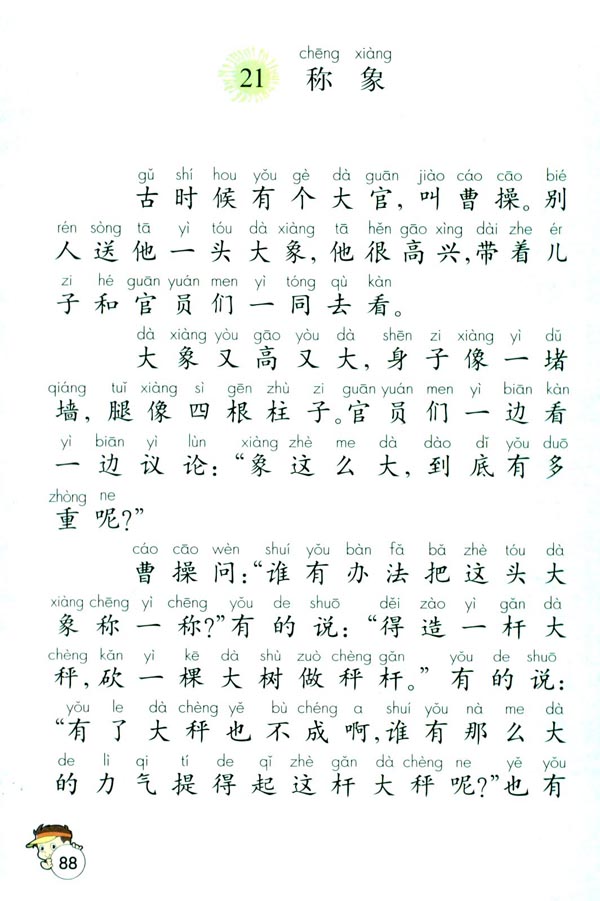 chēng xiàng
21 称 象
gǔ shí hou yǒu gè dà guān jiào cáo cāo bié
古时候有个大官，叫曹操。别
rén sòng tā yì tóu dà xiàng tā hěn gāo xìng dài zhe ér
人送他一头大象，他很高兴，带着儿
zi hé guān yuán men yì tóng qù kàn
子和官员们一同去看。
dà xiàng yòu gāo yòu dà shēn zi xiàng yì dǔ
大象又高又大，身子像一堵
qiáng tuǐ xiàng sì gēn zhù zi guān yuán men yì biān kàn
墙，腿像四根柱子。官员们一边看
yì biān yì lùn xiàng zhè me dà dào dǐ yǒu duō
一边议论：“象这么大，到底有多
zhòng ne
重呢？”
cáo cāo wèn shuí yǒu bàn fǎ bǎ zhè tóu dà
曹操问：“谁有办法把这头大
xiàng chēng yì chēng yǒu de shuō děi zào yì gǎn dà
象称一称？”有的说：“得造一杆大
chèng kǎn yì kē dà shù zuò chèng gǎn yǒu de shuō
秤，砍一棵大树做秤杆。”有的说：
yǒu le dà chèng yě bù chéng a shuí yǒu nà me dà
“有了大秤也不成啊，谁有那么大
de lì qi tí de qǐ zhè gǎn dà chèng ne yě yǒu
的力气提得起这杆大秤呢？”也有
88